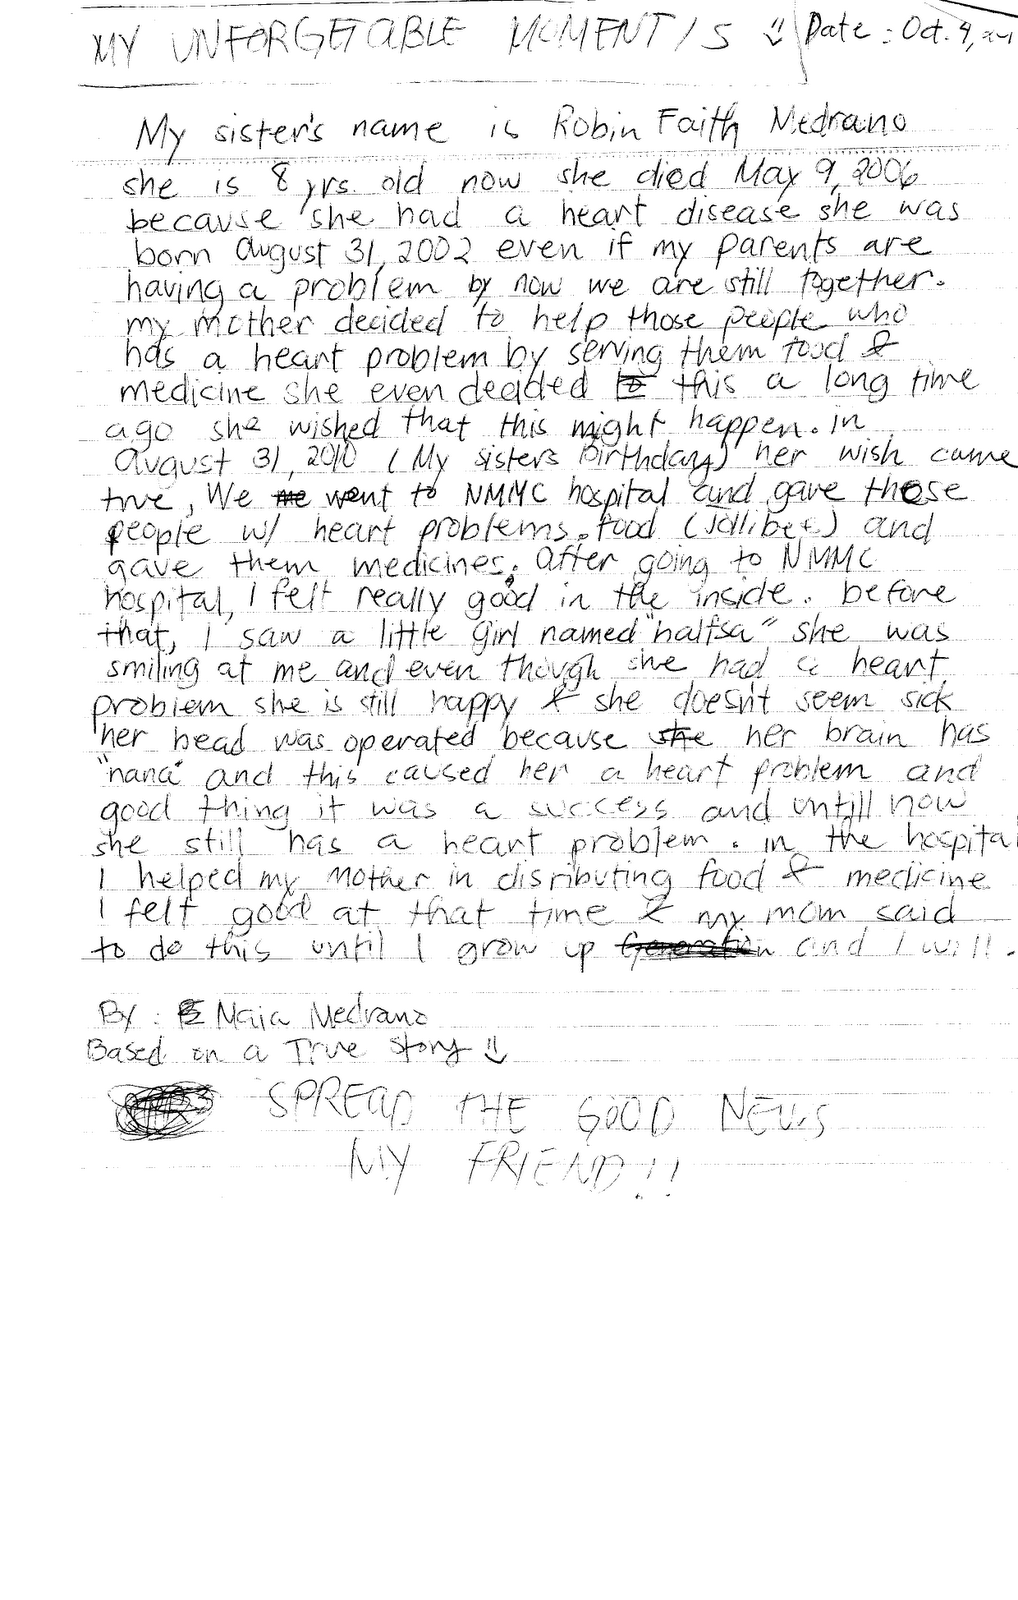 MY UNFORGETABLE MOMENT/S Date: Oct. 9,
My sister's name is Robin Faith Medrano
she is 8 yrs. old now she died May 9, 2006
because she had a heart disease she was
born august 31, 2002 even if my parents are
having a problem by now we are still together.
my mother decided to help those people who
has a heart problem by serving them food &
medicine she even decided this a long time
ago she wished that this might happen. in
august 31, 2010 (My sisters Birthday) her wish came
true, We went to NMMC hospital and gave those
people w/ heart problems. food (Jollibee) and
gave them medicines. after going to NMMC
hospital, I felt really good in the inside. before
that, I saw a little girl named "haifsa" she was
smiling at me and even though she had a heart
problem she is still happy & she doesn't seem sick
her head was operated because her brain has
"nana" and this caused her a heart problem and
good thing it was a success and untill now
she still has a heart problem. in the hospital
I helped my mother in disributing food & medicine
I felt good at that time & my mom said
to do this until I grow up and I will.
By: Naia Medrano
Based on a True Story
SPREAD THE GOOD NEWS
MY FRIEND!!